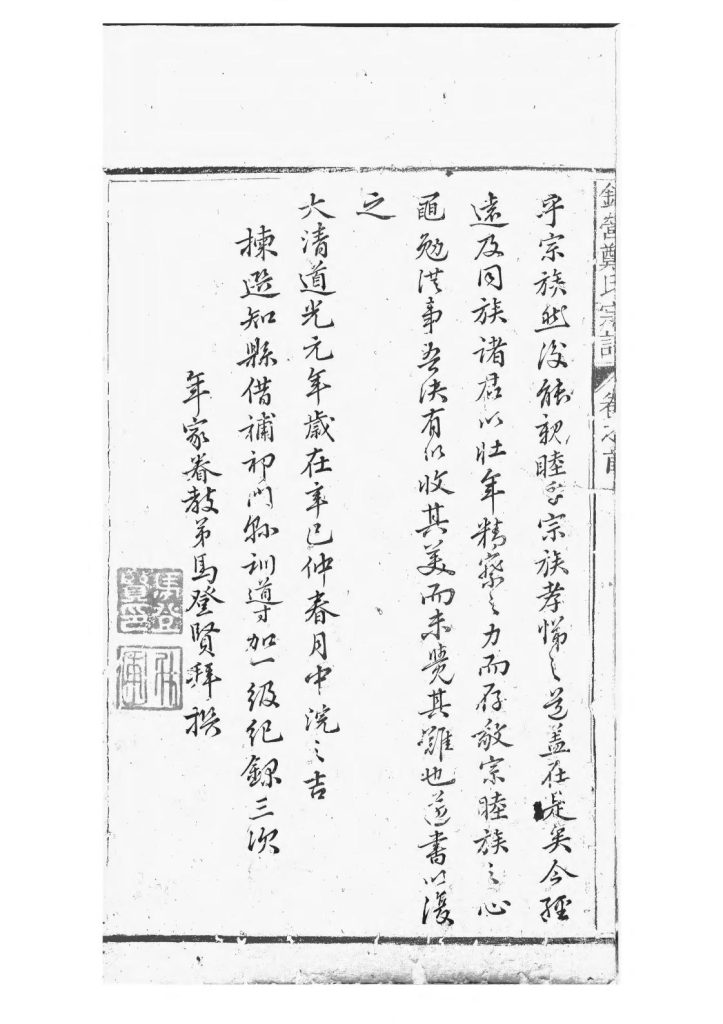 營鄭氏宗譜 卷之首
乎宗族然後能親睦乎宗族孝悌之道蓋在是矣今經
遠及同族諸君以壯年精察之力而存敬宗睦族之心
黽勉洪事吾決有以收其美而未覺其難也遂書以復
之
大清道光元年歲在辛巳仲春月中浣之吉
揀選知縣借補祁門縣訓導加一級紀錄三次
年家眷教弟馬登賢拜撰
馬登賢印